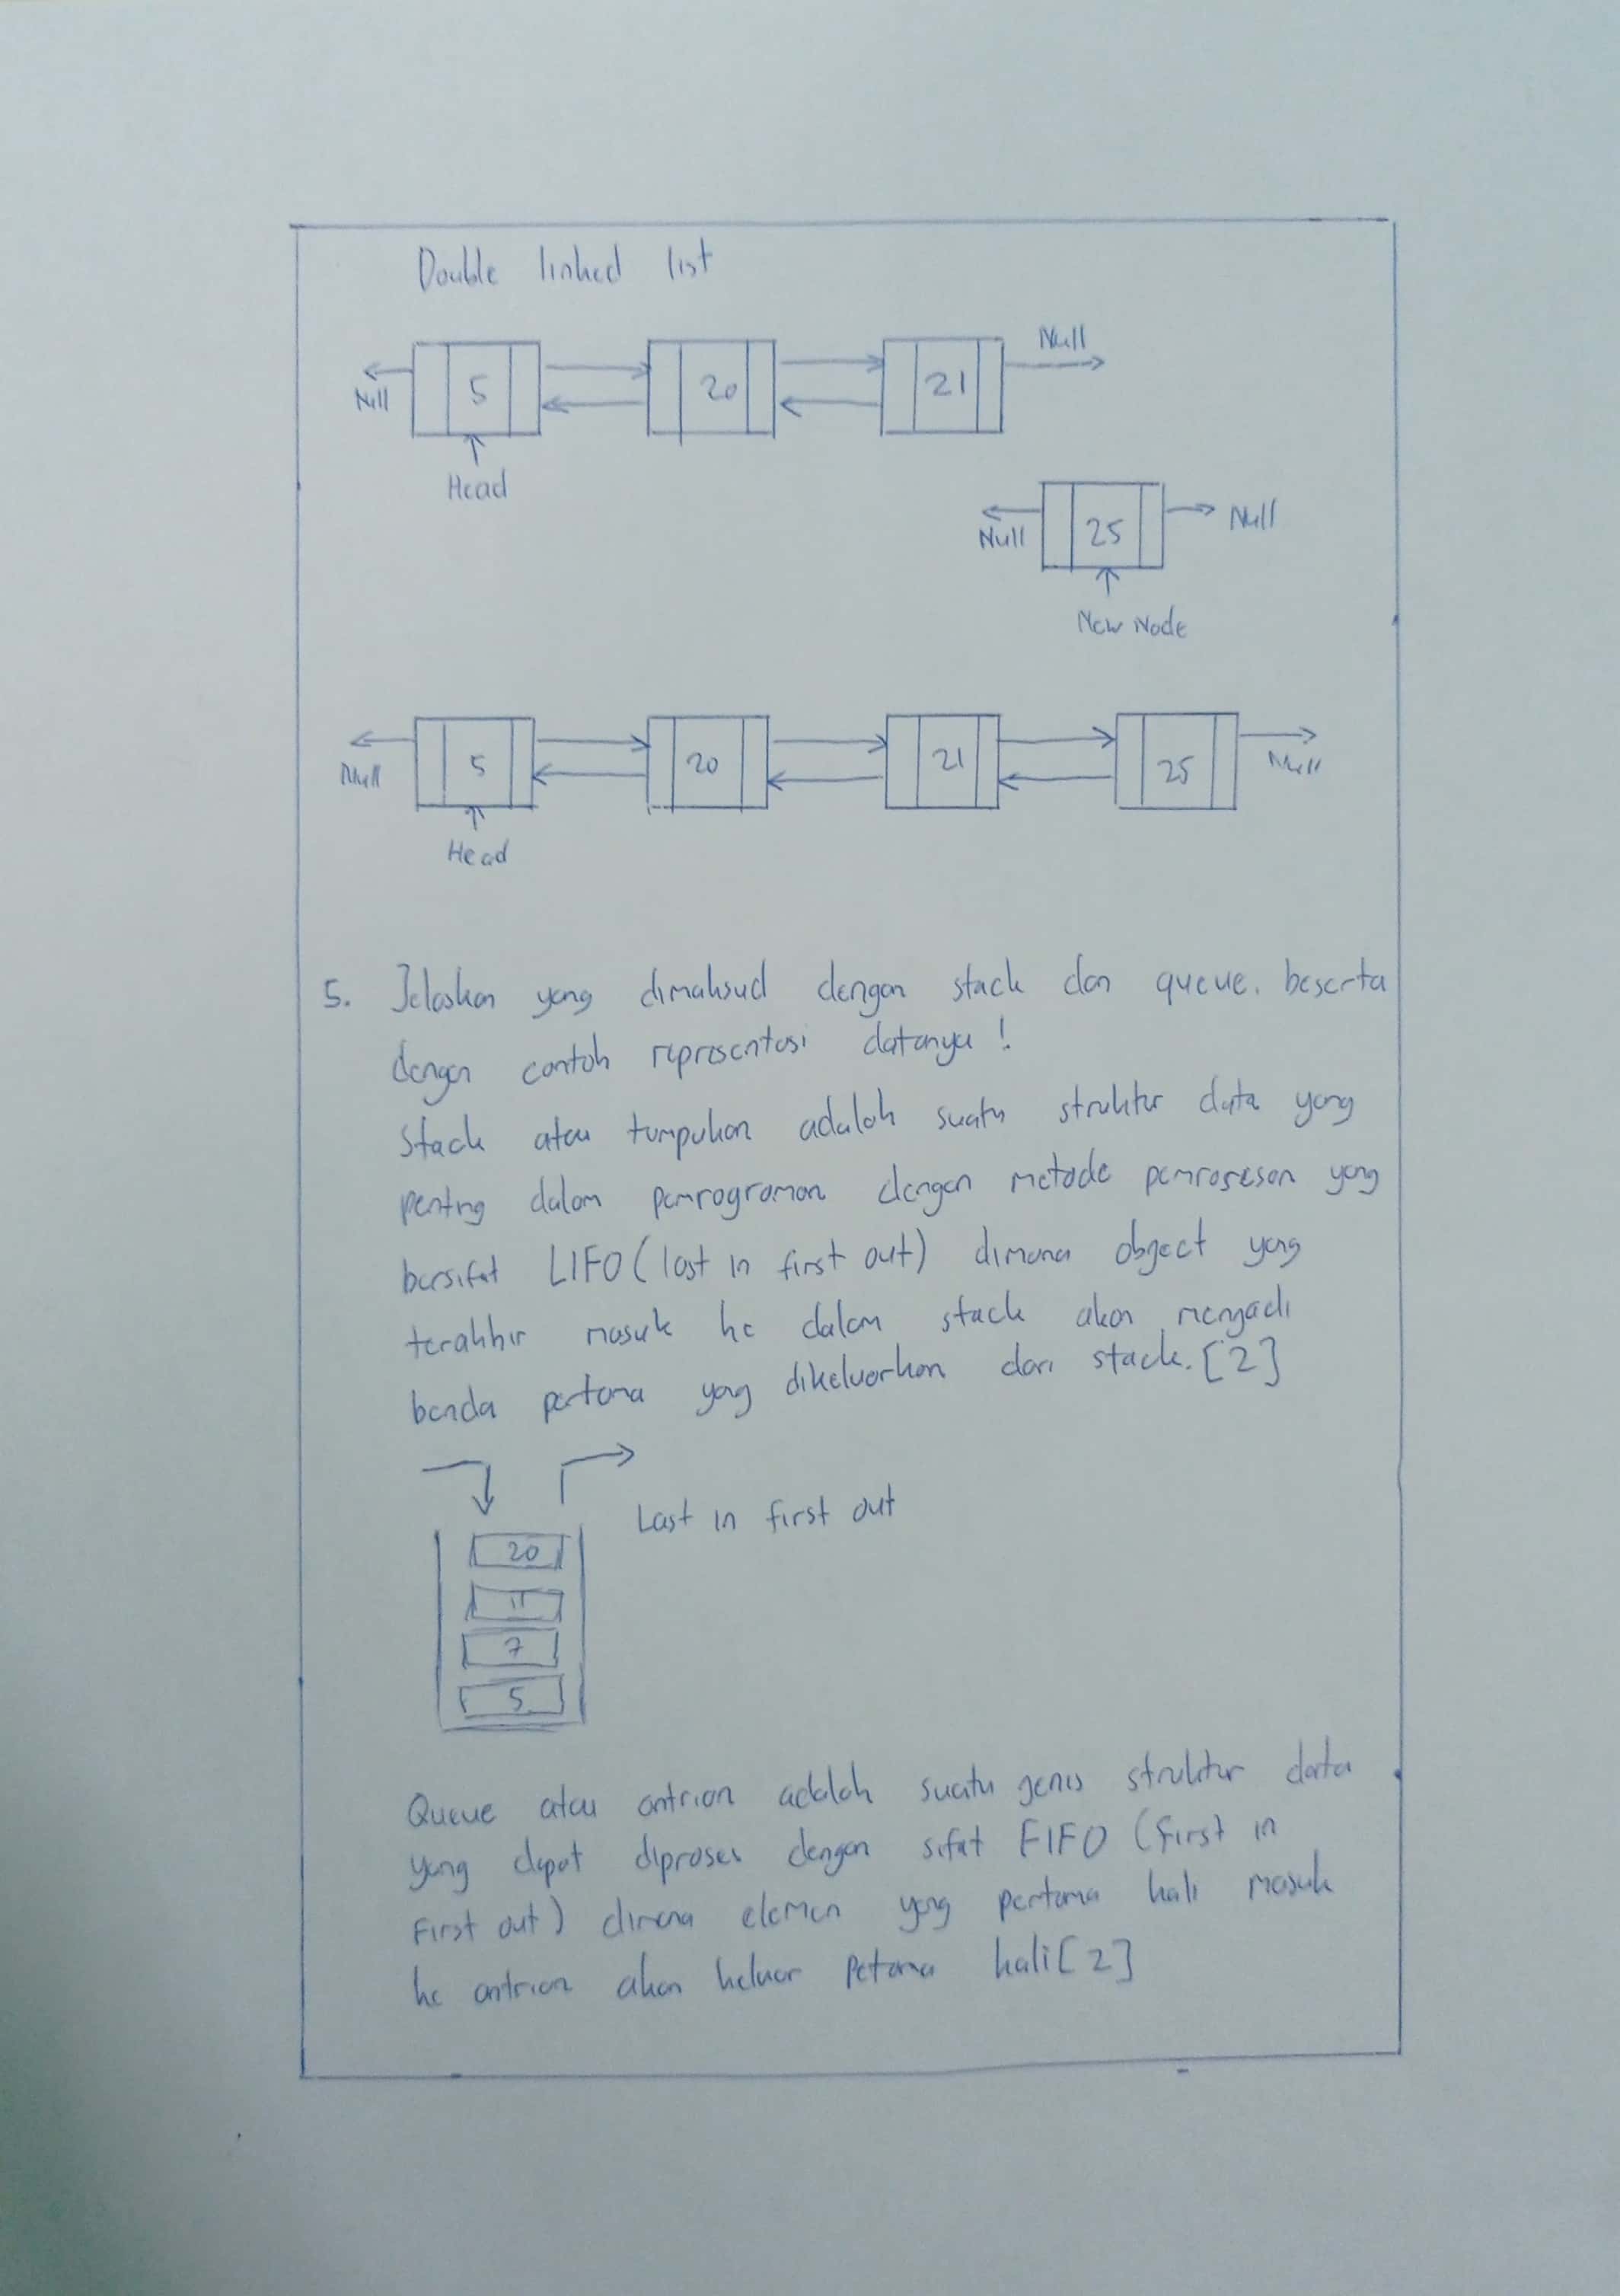 Double linked list
Null
5 20 21
Null
Head
Null 25 Null
New Node
5 20 21 25
Null Null
Head
5. Jelaskan yang dimaksud dengan stack dan queue. beserta
dengan contoh representasi datanya !
Stack atau tumpukan adalah suatu struktur data yang
penting dalam pemrograman dengan metode pemrosesan yang
bersifat LIFO (last in first out) dimana object yang
terakhir masuk ke dalam stack akan menjadi
benda pertama yang dikeluarkan dari stack. [2]
Last in first out
20
11
7
5
Queue atau antrian adalah suatu jenis struktur data
yang dapat diproses dengan sifat FIFO (first in
First out) dimana elemen yang pertama kali masuk
ke antrian akan keluar Petama kali [2]